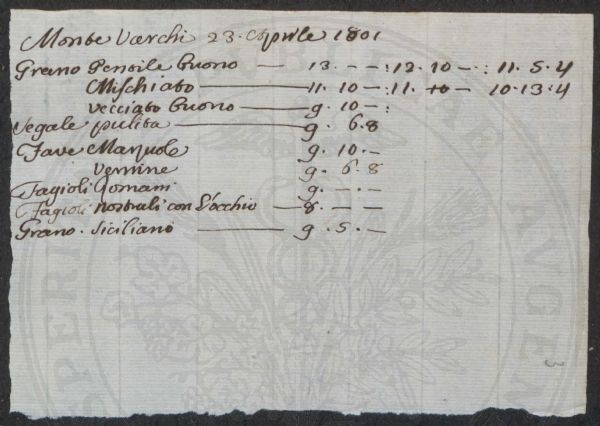 Monte Varchi 23. Aprile 1801
Grano Gentile buono — 13. — —: 12. 10 —: 11. 5. 4
Mischiato — 11. 10 —: 11. 10 — 10. 13. 4
Vecciato buono — 9. 10 —:
Segale pulita — 9. 6. 8
Fave Marzuole 9. 10. —
Vernine 9. 6. 8
Fagioli Romani 9. — . —
Fagioli nostrali con l'occhio — 8. — —
Grano. Siciliano — 9. 5. —
PERI
AUGEN